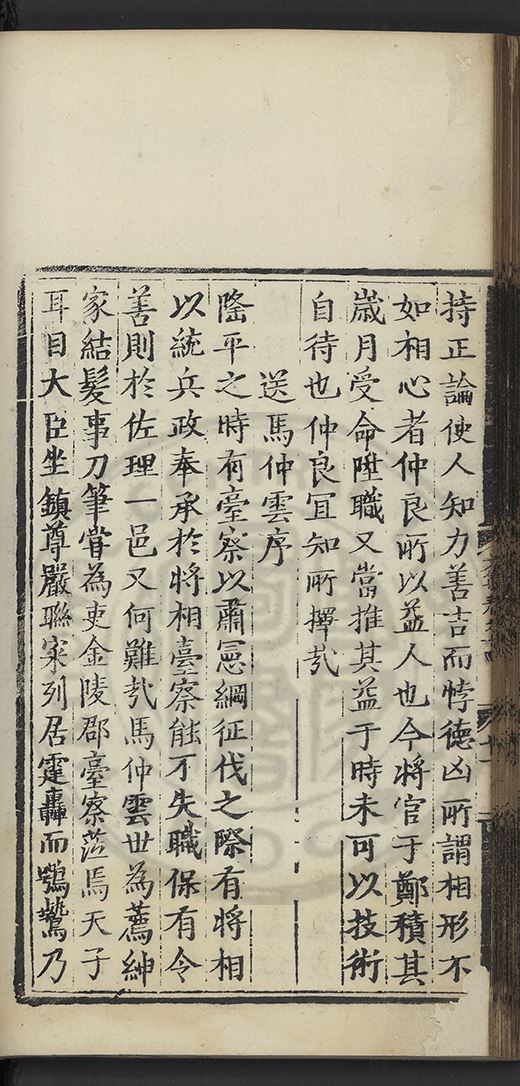 持正論使人知力善吉而悖德凶所謂相形不
如相心者仲良所以益人也今將官于鄭積其
歲月受命陞職又當推其益于時未可以技術
自待也仲良宜知所擇哉
送馬仲雲序
隆平之時有臺察以肅憲綱征伐之際有將相
以統兵政奉承於將相臺察能不失職保有令
善則於佐理一邑又何難哉馬仲雲世為薦紳
家結髪事刀筆嘗為吏金陵郡臺察蒞焉天子
耳目大臣坐鎮尊嚴聯寀列居霆轟而鶚鷙乃